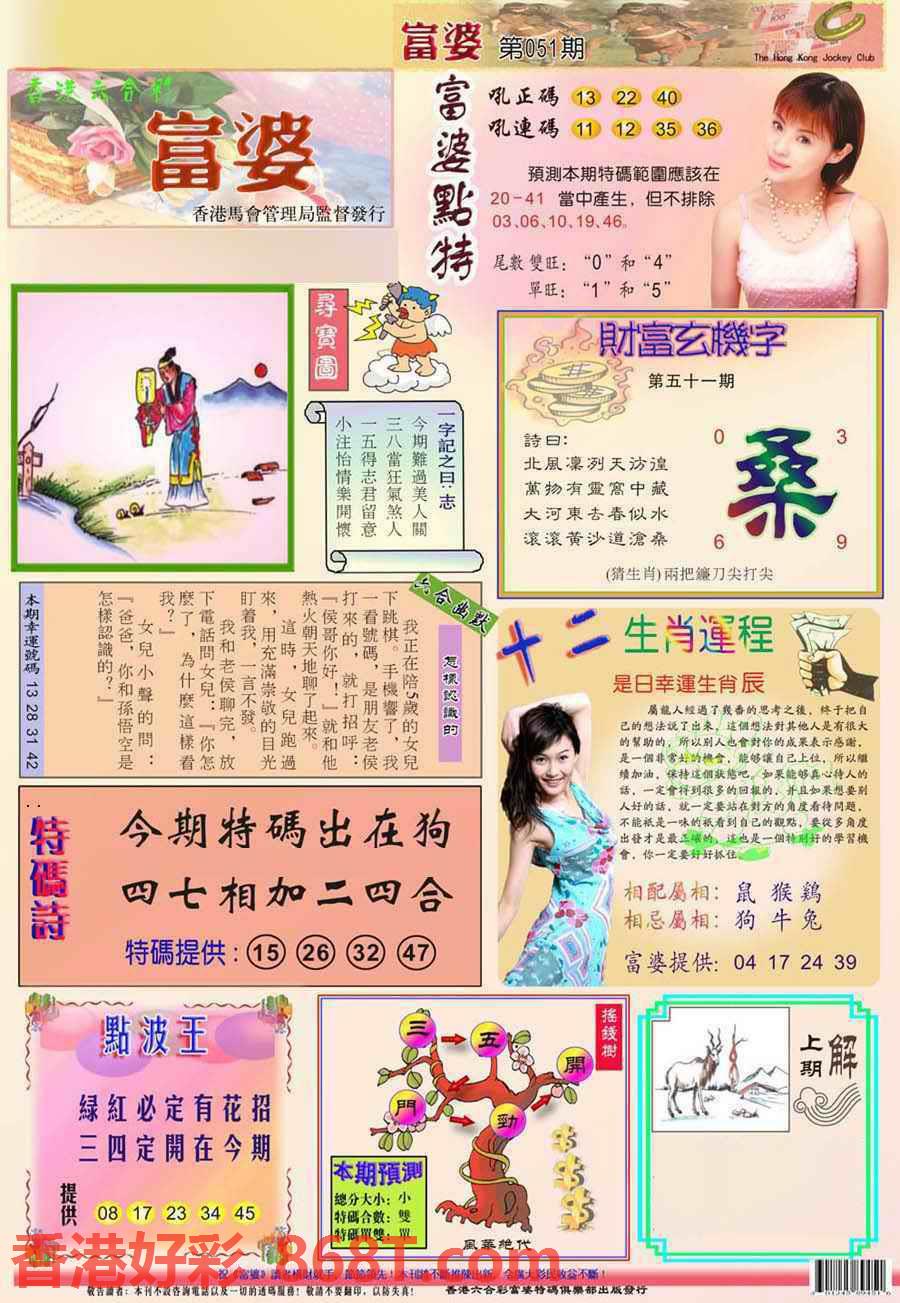 富婆 第051期
The Hong Kong Jockey Club
香港六合彩
富婆
香港馬會管理局監督發行
富婆點特
吼正碼 13 22 40
吼連碼 11 12 35 36
預測本期特碼範圍應該在
20-41 當中產生，但不排除
03、06、10、19、46。
尾數雙旺：“0”和“4”
單旺：“1”和“5”
尋寶圖
一字記之曰：志
今期難過美人關
三八當狂氣煞人
一五得志君留意
小注怡情樂開懷
財富玄機字
第五十一期
詩曰：
北風凜冽天彷徨
萬物有靈窩中藏
大河東去春似水
滾滾黃沙道滄桑
0 3
桑
6 9
(猜生肖)兩把鐮刀尖打尖
六合幽默
怎樣認識的
我正在陪5歲的女兒
下跳棋。手機響了，我
一看號碼，是朋友老侯
打來的，就打招呼：
『侯哥你好！』就和他
熱火朝天地聊了起來。
這時，女兒跑過
來，用充滿崇敬的目光
盯着我，一言不發。
我和老侯聊完，放
下電話問女兒：『你怎
麼了，為什麼這樣看
我？』
女兒小聲的問：
『爸爸，你和孫悟空是
怎樣認識的？』
本期幸運號碼 13 28 31 42
十二生肖運程
是日幸運生肖辰
屬龍人經過了幾番的思考之後，終于把自
己的想法說了出來，這個想法對其他人是有很大
的幫助的，所以別人也會對你的成果表示感謝，
是一個非常好的機會，能够讓自己上位，所以繼
續加油，保持這個狀態吧，如果能够真心待人的
話，一定會得到很多的回報的，并且如果想要別
人好的話，就一定要站在對方的角度看待問題，
不能祇是一味的祇看到自己的觀點，要從多角度
出發才是最正確的，這也是一個特別好的學習機
會，你一定要好好抓住。
相配屬相：鼠 猴 鷄
相忌屬相：狗 牛 兔
富婆提供：04 17 24 39
特碼詩
今期特碼出在狗
四七相加二四合
特碼提供：15 26 32 47
點波王
綠紅必定有花招
三四定開在今期
提供 08 17 23 34 45
搖錢樹
三 五 開
門 勁
本期預測
總分大小：小
特碼合數：雙
特碼單雙：單
風華絕代
上期解
香港好彩-868T.com
祝《富婆》讀者橫財就手，節節領先！本刊將不斷推陳出新，令廣大彩民收益不斷！
敬告讀者：本刊不設咨詢電話以及一切的透碼服務！敬請不要翻印，以防失真！
香港六合彩富婆特碼俱樂部出版發行